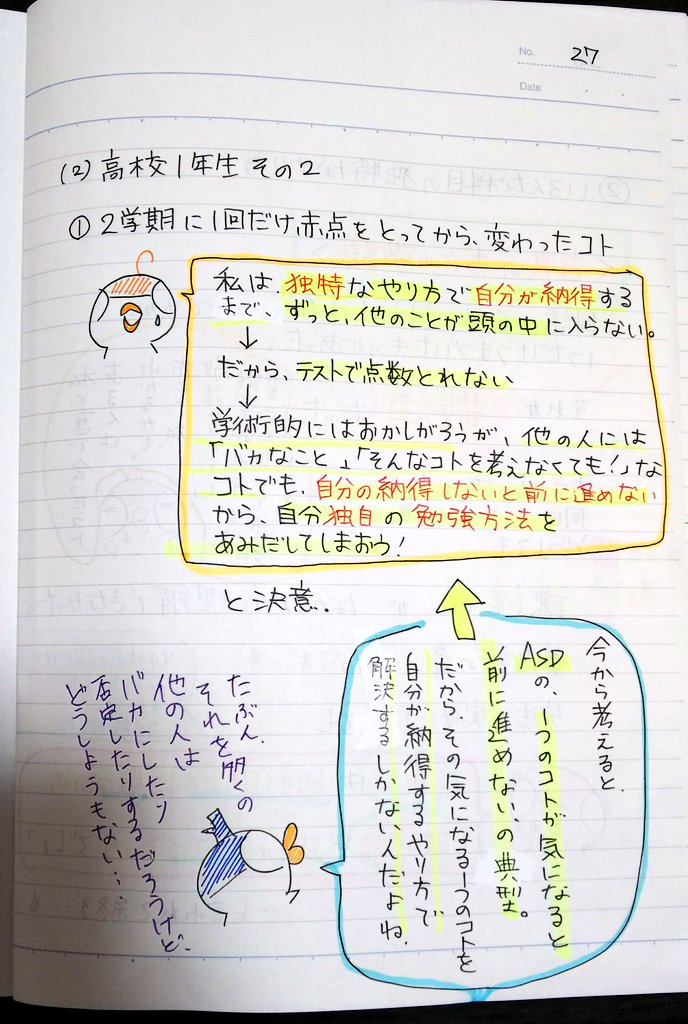 No. 27
Date
(2) 高校1年生 その2
① 2学期に1回だけ、赤点をとってから、変わったコト
私は、独特なやり方で自分が納得する
まで、ずっと、他のことが頭の中に入らない。
↓
だから、テストで点数とれない
↓
学術的にはおかしがろうが、他の人には
「バカなこと」「そんなコトを考えなくても!」な
コトでも、自分の納得しないと前に進めない
から、自分独自の勉強方法を
あみだしてしまおう!
と決意.
今から考えると、
ASDの、1つのコトが気になると
前に進めない、の典型。
だから、その気になる1つのコトを
自分が納得するやり方で
解決するしかないんだよね.
たぶん、
それを多くの
他の人は
バカにしたり
否定したりするだろうけど、
どうしようもない…